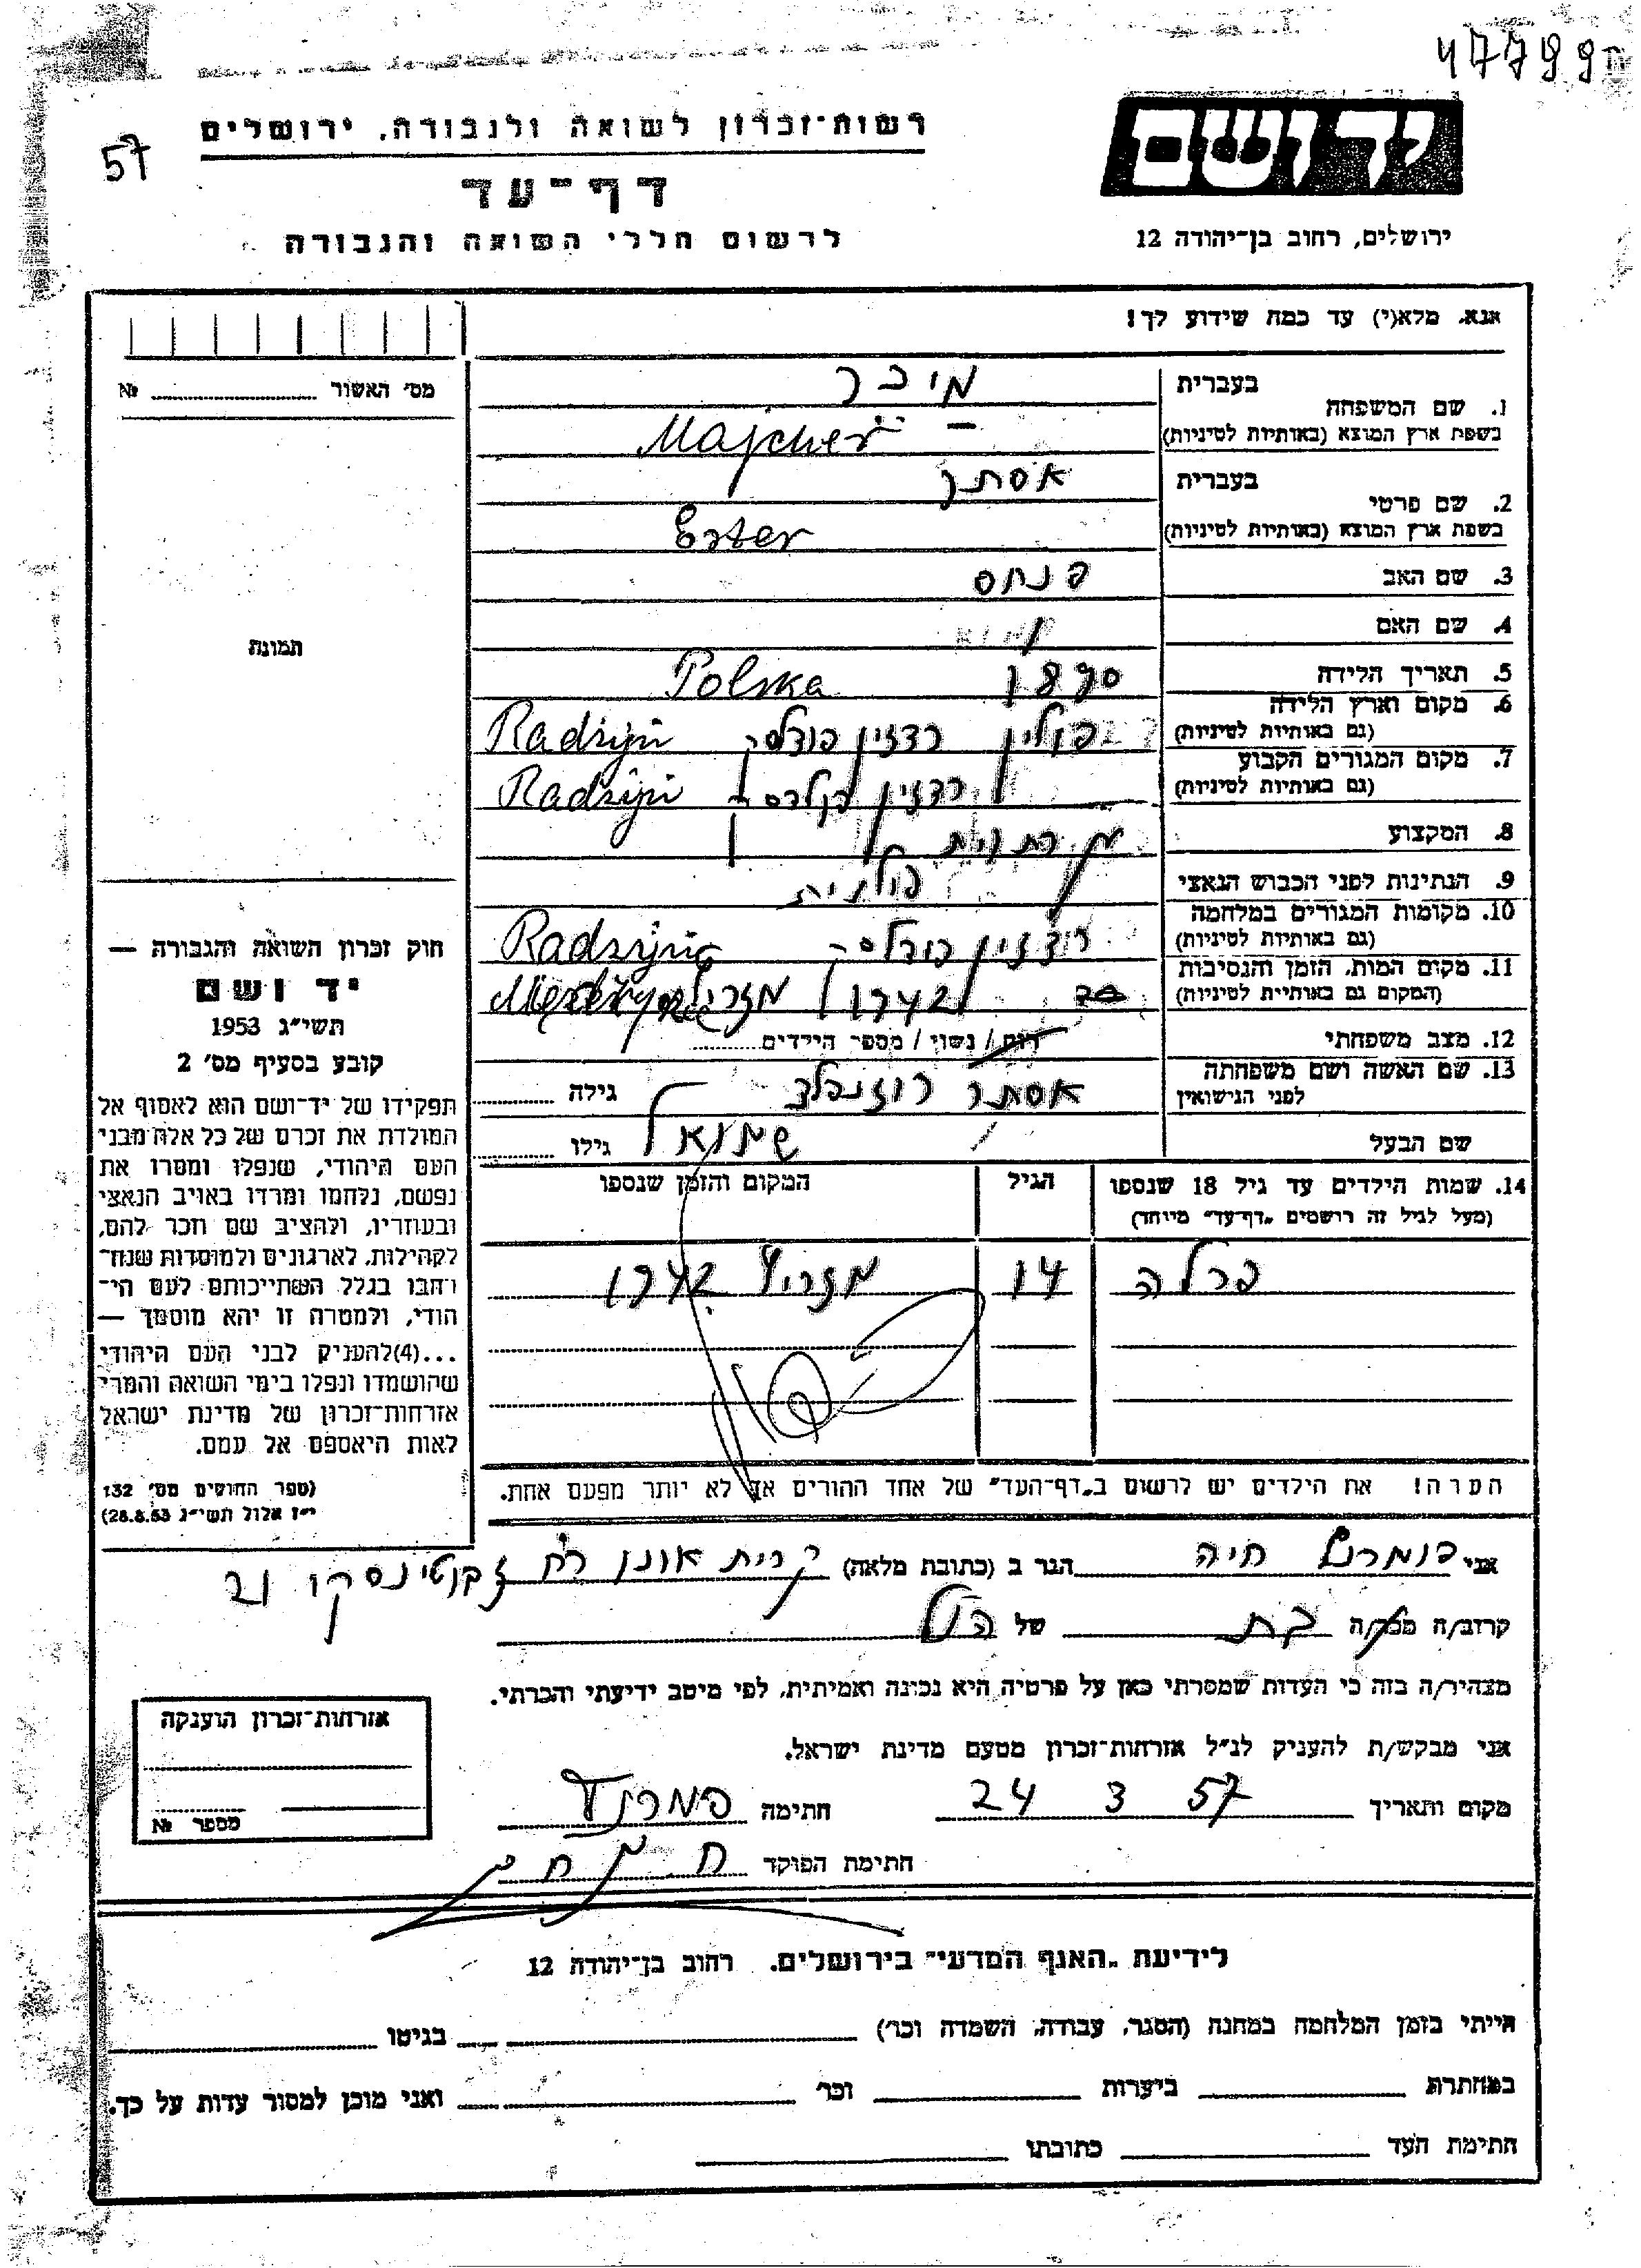 47799
57
יד ושם
רשות-זכרון לשואה ולגבורה, ירושלים
דף-עד
לרשום חללי השואה והגבורה
ירושלים, רחוב בן-יהודה 12
אנא, מלא(י) עד כמה שידוע לך!
מס' האשור №
1. שם המשפחה
בעברית
מיכר
בשפת ארץ המוצא (באותיות לטיניות)
Majcher
2. שם פרטי
בעברית
אסתר
בשפת ארץ המוצא (באותיות לטיניות)
Ester
3. שם האב
פנחס
4. שם האם
5. תאריך הלידה
1890 Polska
6. מקום וארץ הלידה
(גם באותיות לטיניות)
פולין רדזין פודלסקי Radzyń
7. מקום המגורים הקבוע
(גם באותיות לטיניות)
רדזין Radzyń
8. המקצוע
9. הנתינות לפני הכבוש הנאצי
פולנית
10. מקומות המגורים במלחמה
(גם באותיות לטיניות)
רדזין פודלסקי Radzyń
11. מקום המות, הזמן והנסיבות
(המקום גם באותיות לטיניות)
1942
12. מצב משפחתי
רווק / נשוי / מספר הילדים
13. שם האשה ושם משפחתה
לפני הנישואין
אסתר רוזנבלט גילה
שם הבעל
שמואל גילו
תמונה
חוק זכרון השואה והגבורה —
יד ושם
תשי"ג 1953
קובע בסעיף מס' 2
תפקידו של יד-ושם הוא לאסוף אל
המולדת את זכרם של כל אלה מבני
העם היהודי, שנפלו ומסרו את
נפשם, נלחמו ומרדו באויב הנאצי
ובעוזריו, ולהציב שם וזכר להם,
לקהילות, לארגונים ולמוסדות שנח-
רבו בגלל השתייכותם לעם הי-
הודי, ולמטרה זו יהא מוסמך —
...(4) להעניק לבני העם היהודי
שהושמדו ונפלו בימי השואה והמרי
אזרחות-זכרון של מדינת ישראל
לאות היאספם אל עמם.
(ספר החוקים מס' 132
י"ז אלול תשי"ג 28.8.53)
14. שמות הילדים עד גיל 18 שנספו
(מעל לגיל זה רושמים "דף-עד" מיוחד)
הגיל
המקום והזמן שנספו
פרלה 14 מזריץ 1942
הערה! את הילדים יש לרשום ב"דף-העד" של אחד ההורים אך לא יותר מפעם אחת.
אני פומרנץ חיה הגר ב (כתובת מלאה) קרית אונו רח' ז'בוטינסקי 21
קרוב/ה בת של הנ"ל
מצהיר/ה בזה כי העדות שמסרתי כאן על פרטיה היא נכונה ואמיתית, לפי מיטב ידיעתי והכרתי.
אני מבקש/ת להעניק לנ"ל אזרחות-זכרון מטעם מדינת ישראל.
מקום ותאריך 24 3 57 חתימה פומרנץ
חתימת הפוקד
אזרחות-זכרון הוענקה
מספר №
לידיעת "האגף המדעי" בירושלים, רחוב בן-יהודה 12
הייתי בזמן המלחמה במחנה (הסגר, עבודה, השמדה וכו') בגיטו
במחתרת ביערות וכו' ואני מוכן למסור עדות על כך.
חתימת העד כתובתו